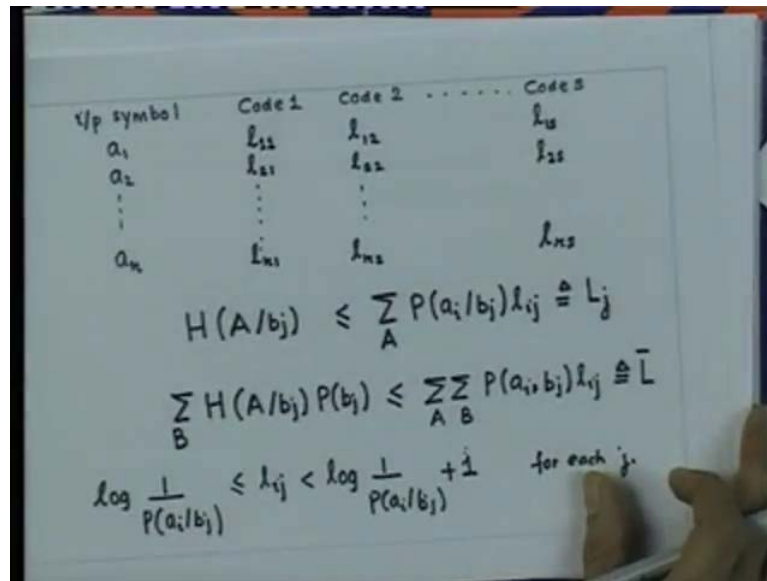 I/p symbol Code 1 Code 2 ....... Code s
a₁ l₁₁ l₁₂ l₁s
a₂ l₂₁ l₂₂ l₂s
aₙ lₙ₁ lₙ₂ lₙs
H(A/bj) ≤ Σ_A P(ai/bj) lij ≜ Lj
Σ_B H(A/bj) P(bj) ≤ Σ_A Σ_B P(ai, bj) lij ≜ L̄
log 1/P(ai/bj) ≤ lij < log 1/P(ai/bj) + 1 for each j.